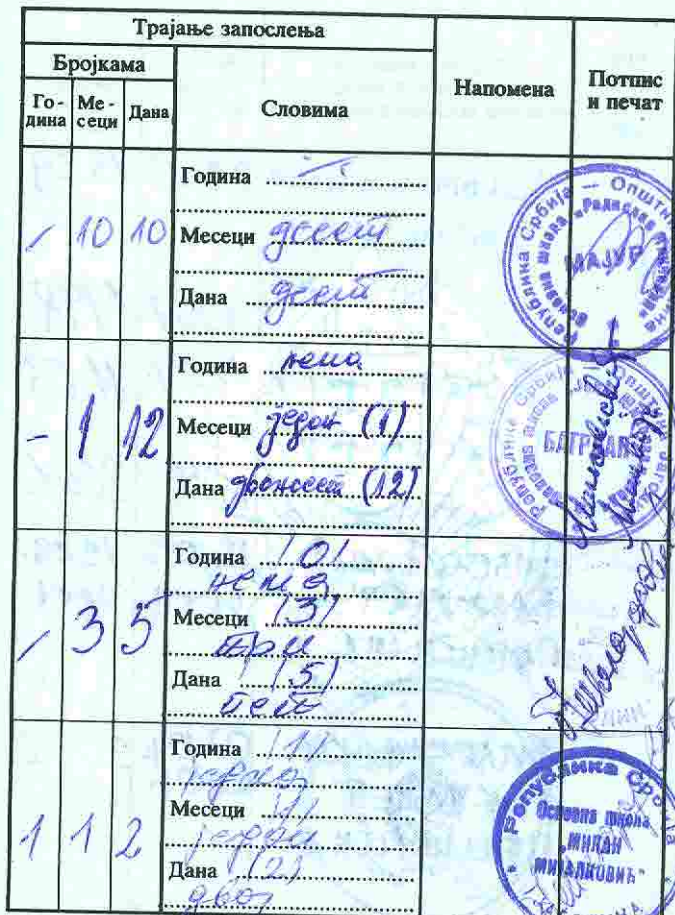 Трајање запослења
Бројкама
Словима
Напомена
Потпис и печат
Го-дина
Ме-сеци
Дана
- 10 10
Година -
Месеци десет
Дана десет
Република Србија - Општина
Основна школа
МАЈУР
- 1 12
Година нема
Месеци један (1)
Дана дванаест (12)
Република Србија
- 3 5
Година (0)
нема
Месеци (3)
три
Дана (5)
пет
1 1 2
Година (1)
Месеци (1)
Дана (2)
Република Србија
Основна школа
"МИЛАН
МИЈАЛКОВИЋ"